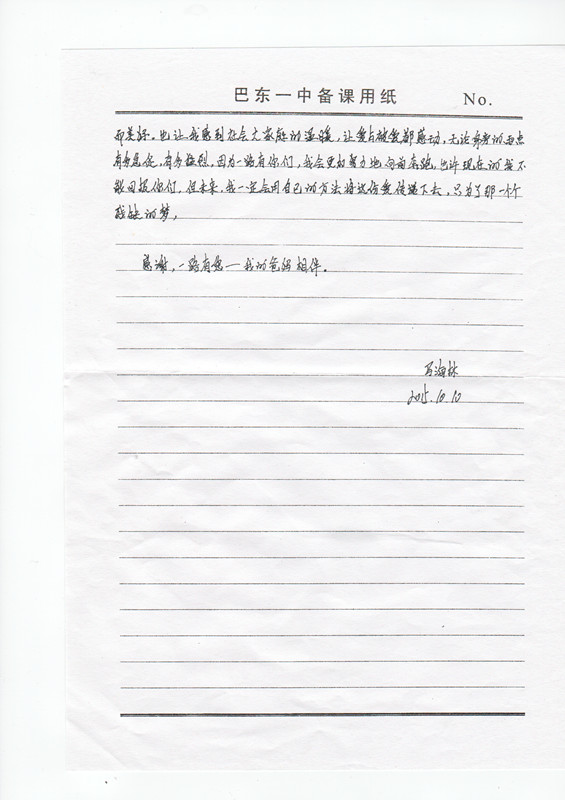 巴东一中备课用纸 No.
而美好。也让我感到社会大家庭的温暖，让爱与被爱都感动，无论奔跑的
有多，有多，因为一路有你们，我会更加努力地向前奔跑，也许现在的我不
能回报你们，但未来，我一定会用自己的方法将这份爱传递下去，只为了那一个个
残缺的梦，
感谢，一路有您—我的
相伴。
海林
2015.10.10